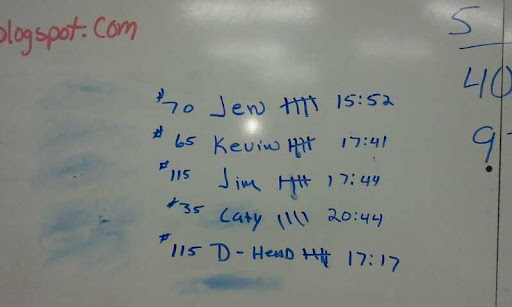 blogspot.com
5
40
9
#70 Jen 15:52
#65 Kevin 17:41
#115 Jim 17:44
#35 Caty 20:44
#115 D-Head 17:17